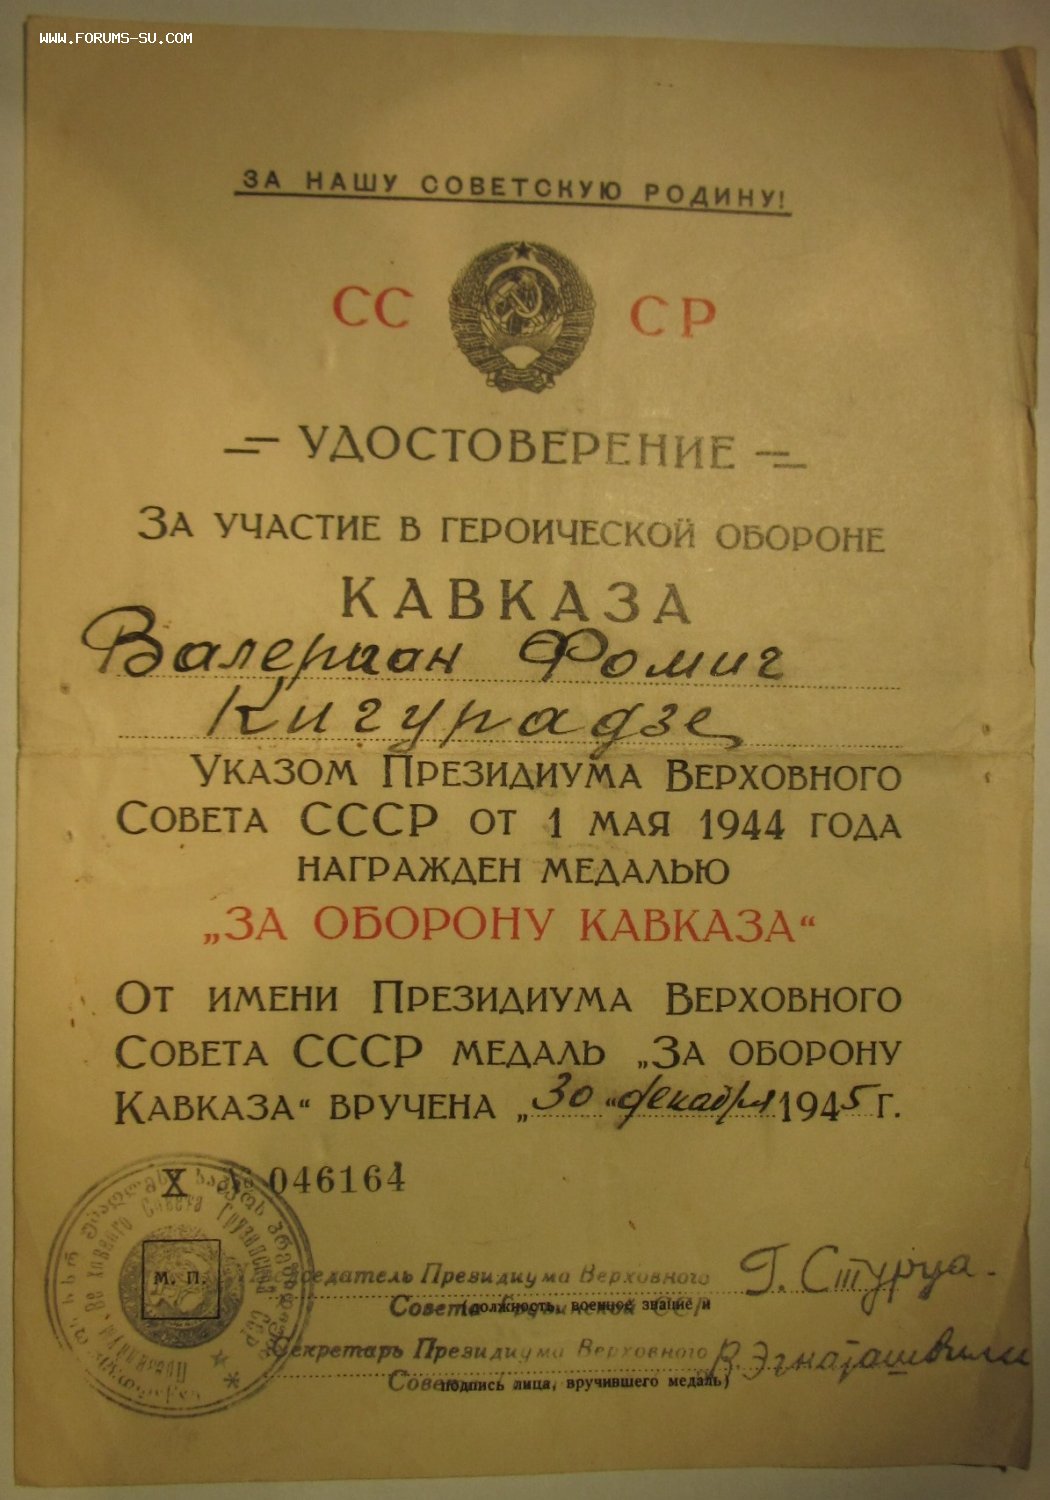 WWW.FORUMS-SU.COM
ЗА НАШУ СОВЕТСКУЮ РОДИНУ!
СС СР
УДОСТОВЕРЕНИЕ
ЗА УЧАСТИЕ В ГЕРОИЧЕСКОЙ ОБОРОНЕ
КАВКАЗА
Валериан Фомич
Кигурадзе
УКАЗОМ ПРЕЗИДИУМА ВЕРХОВНОГО
СОВЕТА СССР ОТ 1 МАЯ 1944 ГОДА
НАГРАЖДЕН МЕДАЛЬЮ
„ЗА ОБОРОНУ КАВКАЗА“
ОТ ИМЕНИ ПРЕЗИДИУМА ВЕРХОВНОГО
СОВЕТА СССР МЕДАЛЬ „ЗА ОБОРОНУ
КАВКАЗА“ ВРУЧЕНА „30“ декабря 1945 Г.
X № 046164
М. П.
Председатель Президиума Верховного Г. Стуруа
Совета Грузинской ССР
(должность, военное звание и
Секретарь Президиума Верховного В. Эгнаташвили
Совета
подпись лица, вручившего медаль)